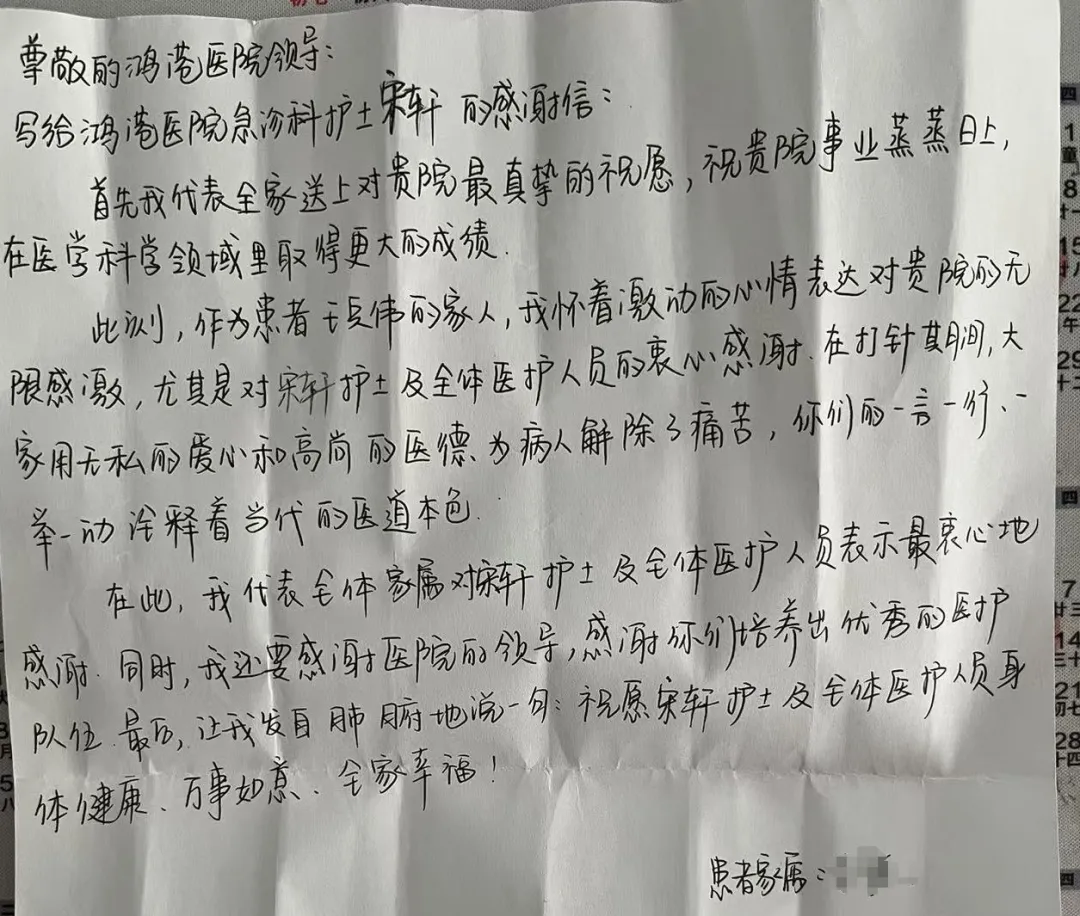 尊敬的鸿港医院领导：
写给鸿港医院急诊科护士宋轩 的感谢信：
首先我代表全家送上对贵院最真挚的祝愿，祝贵院事业蒸蒸日上，
在医学科学领域里取得更大的成绩.
此刻，作为患者 伟的家人，我怀着激动的心情表达对贵院的无
限感激，尤其是对宋轩护士及全体医护人员的衷心感谢.在打针其期间，大
家用无私的爱心和高尚的医德为病人解除了痛苦，你们的一言一行、一
举一动诠释着当代的医道本色.
在此，我代表全体家属对宋轩护士及全体医护人员表示最衷心地
感谢.同时，我还要感谢医院的领导，感谢你们培养出优秀的医护
队伍.最后，让我发自肺腑地说一句：祝愿宋轩护士及全体医护人员身
体健康、万事如意、全家幸福！
患者家属：
1
童
8
廿一
15
廿八
22
午
29
十二
四
7
廿三
14
三十
21
初七
28
十四
四
5